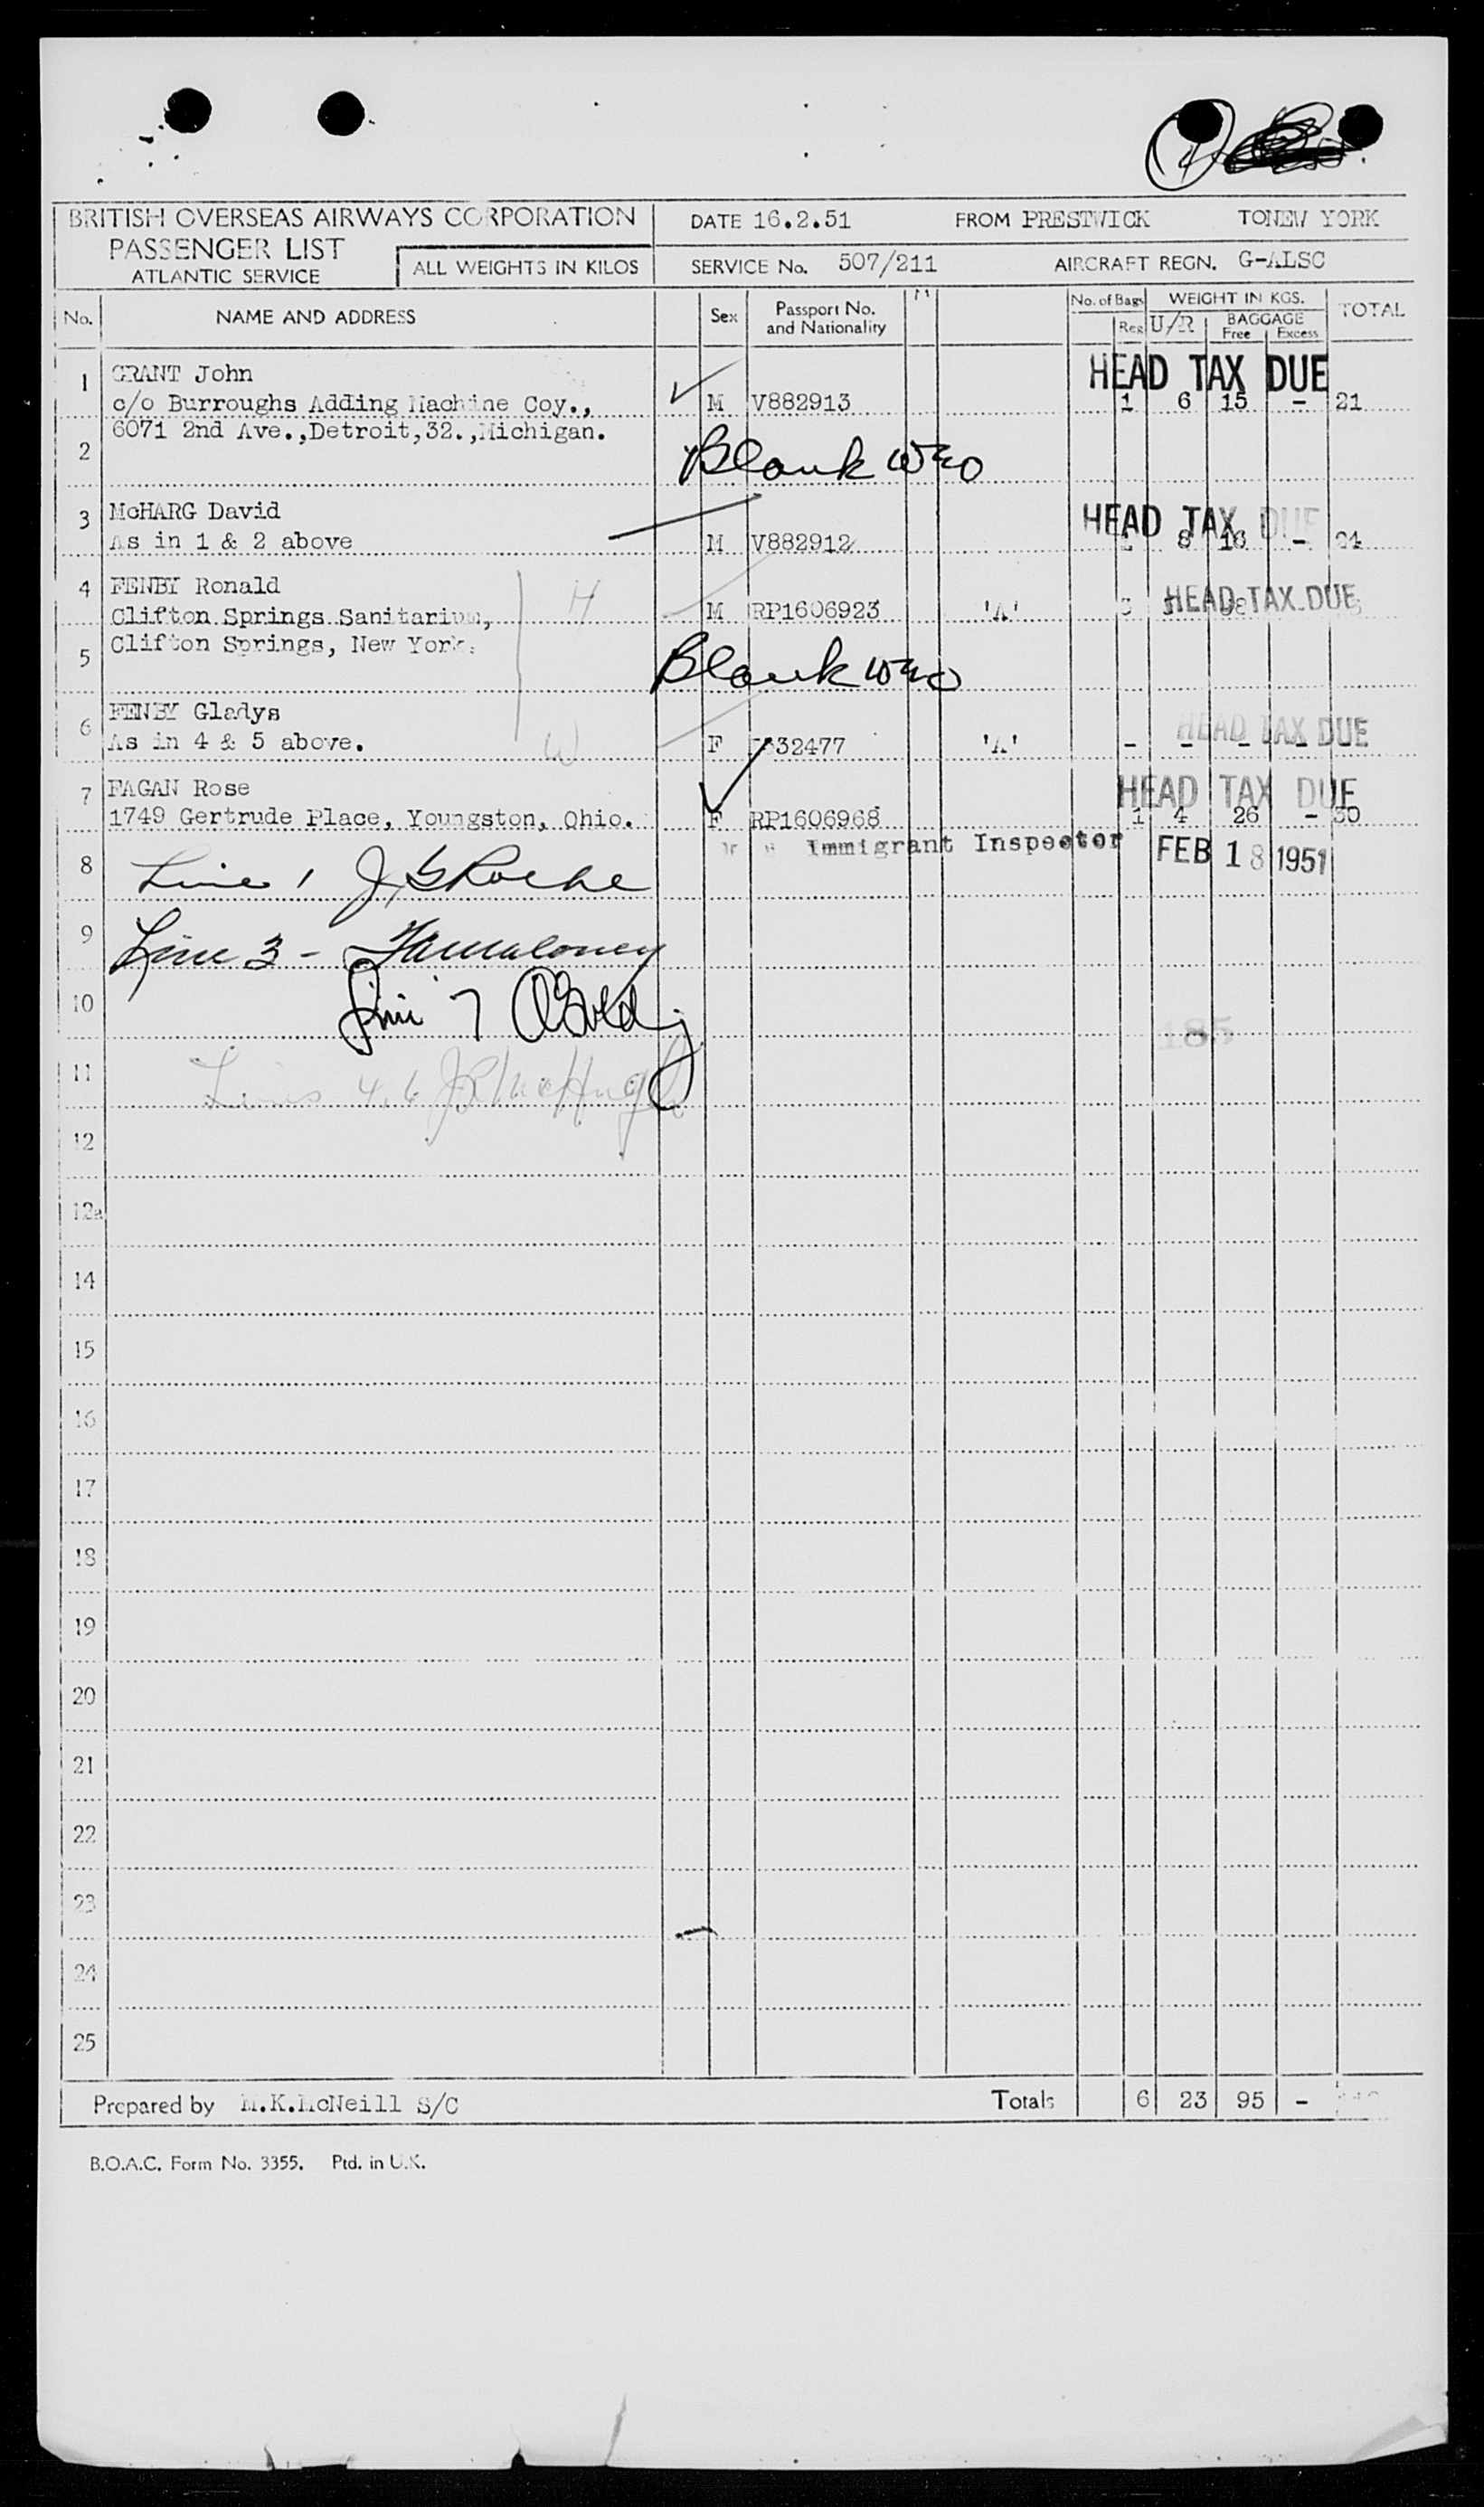 BRITISH OVERSEAS AIRWAYS CORPORATION
PASSENGER LIST
ATLANTIC SERVICE
ALL WEIGHTS IN KILOS
DATE 16.2.51 FROM PRESTWICK TO NEW YORK
SERVICE No. 507/211 AIRCRAFT REGN. G-ALSC
No. NAME AND ADDRESS Sex Passport No. and Nationality No. of Bags Reg WEIGHT IN KGS. U/R BAGGAGE Free Excess TOTAL
HEAD TAX DUE
1 GRANT John
c/o Burroughs Adding Machine Coy., M V882913 1 6 15 - 21
6071 2nd Ave.,Detroit,32.,Michigan.
2 Blank
HEAD TAX DUE
3 McHARG David
As in 1 & 2 above M V882912 8 16 - 24
4 FENBY Ronald H
Clifton Springs Sanitarium, M RP1606923 'A' HEAD TAX DUE
Clifton Springs, New York.
5 Blank
6 FENBY Gladys HEAD TAX DUE
As in 4 & 5 above. W F 'A' - - - -
7 FAGAN Rose HEAD TAX DUE
1749 Gertrude Place, Youngston, Ohio. F RP1606968 1 4 26 - 30
Immigrant Inspector FEB 18 1951
8 Line 1 J G Roche
9 Line 3 -
10 Line 7
185
11 Lines 4,6
12
12a
14
15
16
17
18
19
20
21
22
23
24
25
Prepared by M.K.McNeill S/C Totals 6 23 95 -
B.O.A.C. Form No. 3355. Ptd. in U.K.